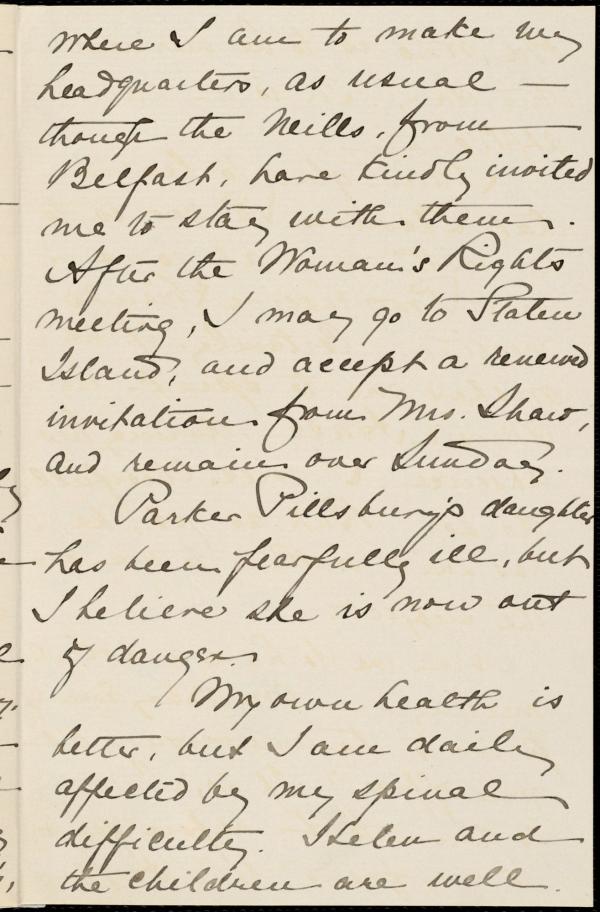 where I am to make my
headquarters, as usual —
though the Neills, from
Belfast, have kindly invited
me to stay with them.
After the Woman's Rights
meeting, I may go to Staten
Island, and accept a renewed
invitation from Mrs. Shaw,
and remain over Sunday.
Parker Pillsbury's daughter
has been fearfully ill, but
I believe she is now out
of danger.
My own health is
better, but I am daily
affected by my spinal
difficulty. Helen and
the children are well.